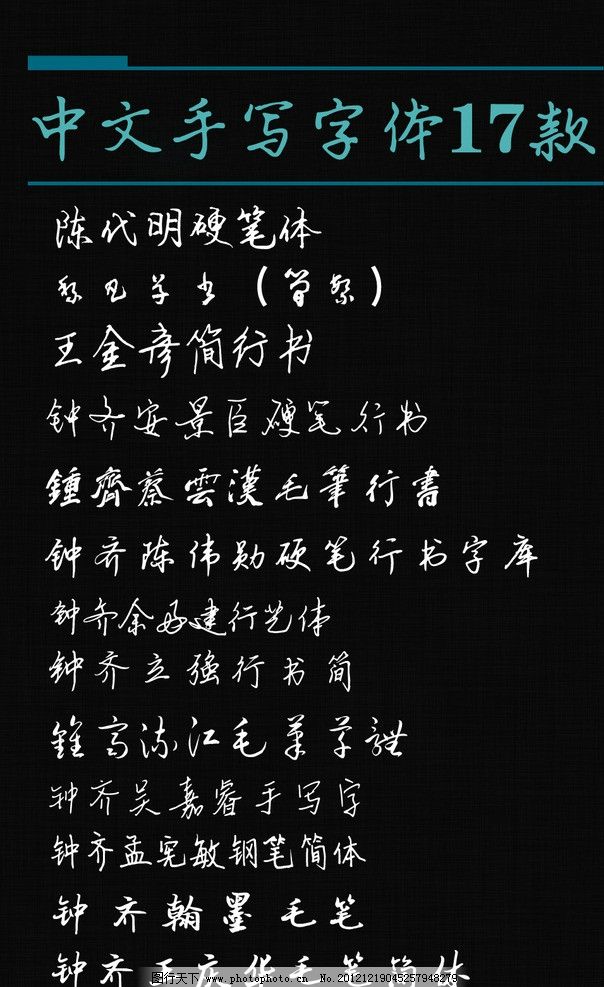 中文手写字体17款
陈代明硬笔体
草书（简繁）
王金彦简行书
钟齐安景臣硬笔行书
鍾齊蔡雲漢毛筆行書
钟齐陈伟勋硬笔行书字库
钟齐余好建行艺体
钟齐立强行书简
鍾齊流江毛筆草體
钟齐吴嘉睿手写字
钟齐孟宪敏钢笔简体
钟齐翰墨毛笔
钟齐王庆华毛笔简体
图行天下 www.photophoto.cn No.20121219045257948279